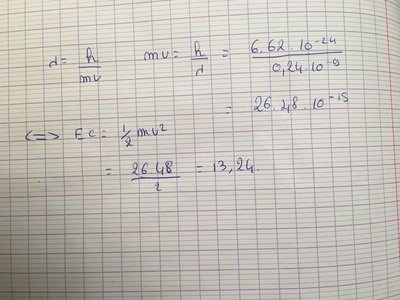 λ = h/mv    mv = h/λ = 6.62 . 10⁻²⁴/0,24 . 10⁻⁹
= 26.48 . 10⁻¹⁵
<=> Ec = 1/2 mv²
= 26.48/2 = 13,24.